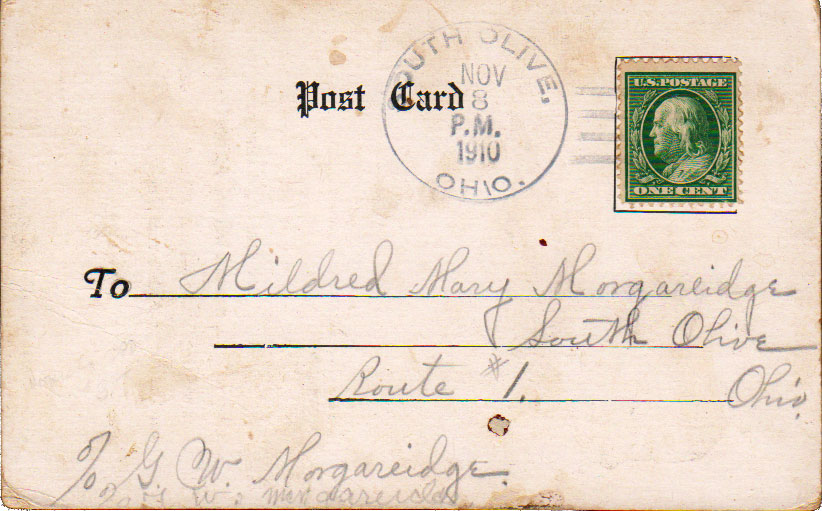 SOUTH OLIVE,
NOV
8
P.M.
1910
OHIO.
U.S. POSTAGE
ONE CENT
Post Card
To Mildred Mary Morgareidge
South Olive
Route #1. Ohio
% G. W. Morgareidge.